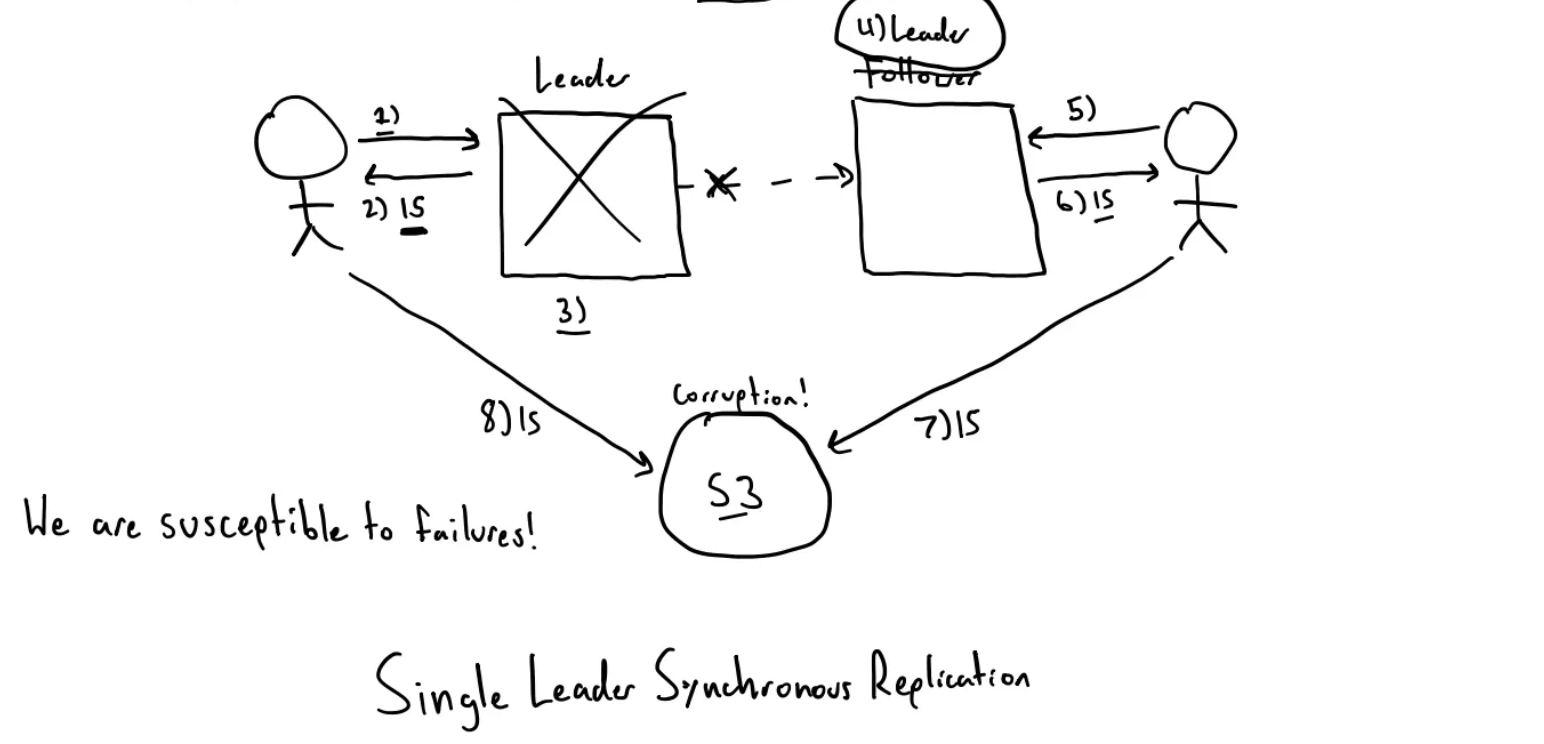 4) Leader
Leader
Follower
1)
5)
2) 15
6) 15
3)
Corruption!
8) 15
7) 15
S3
We are susceptible to failures!
Single Leader Synchronous Replication